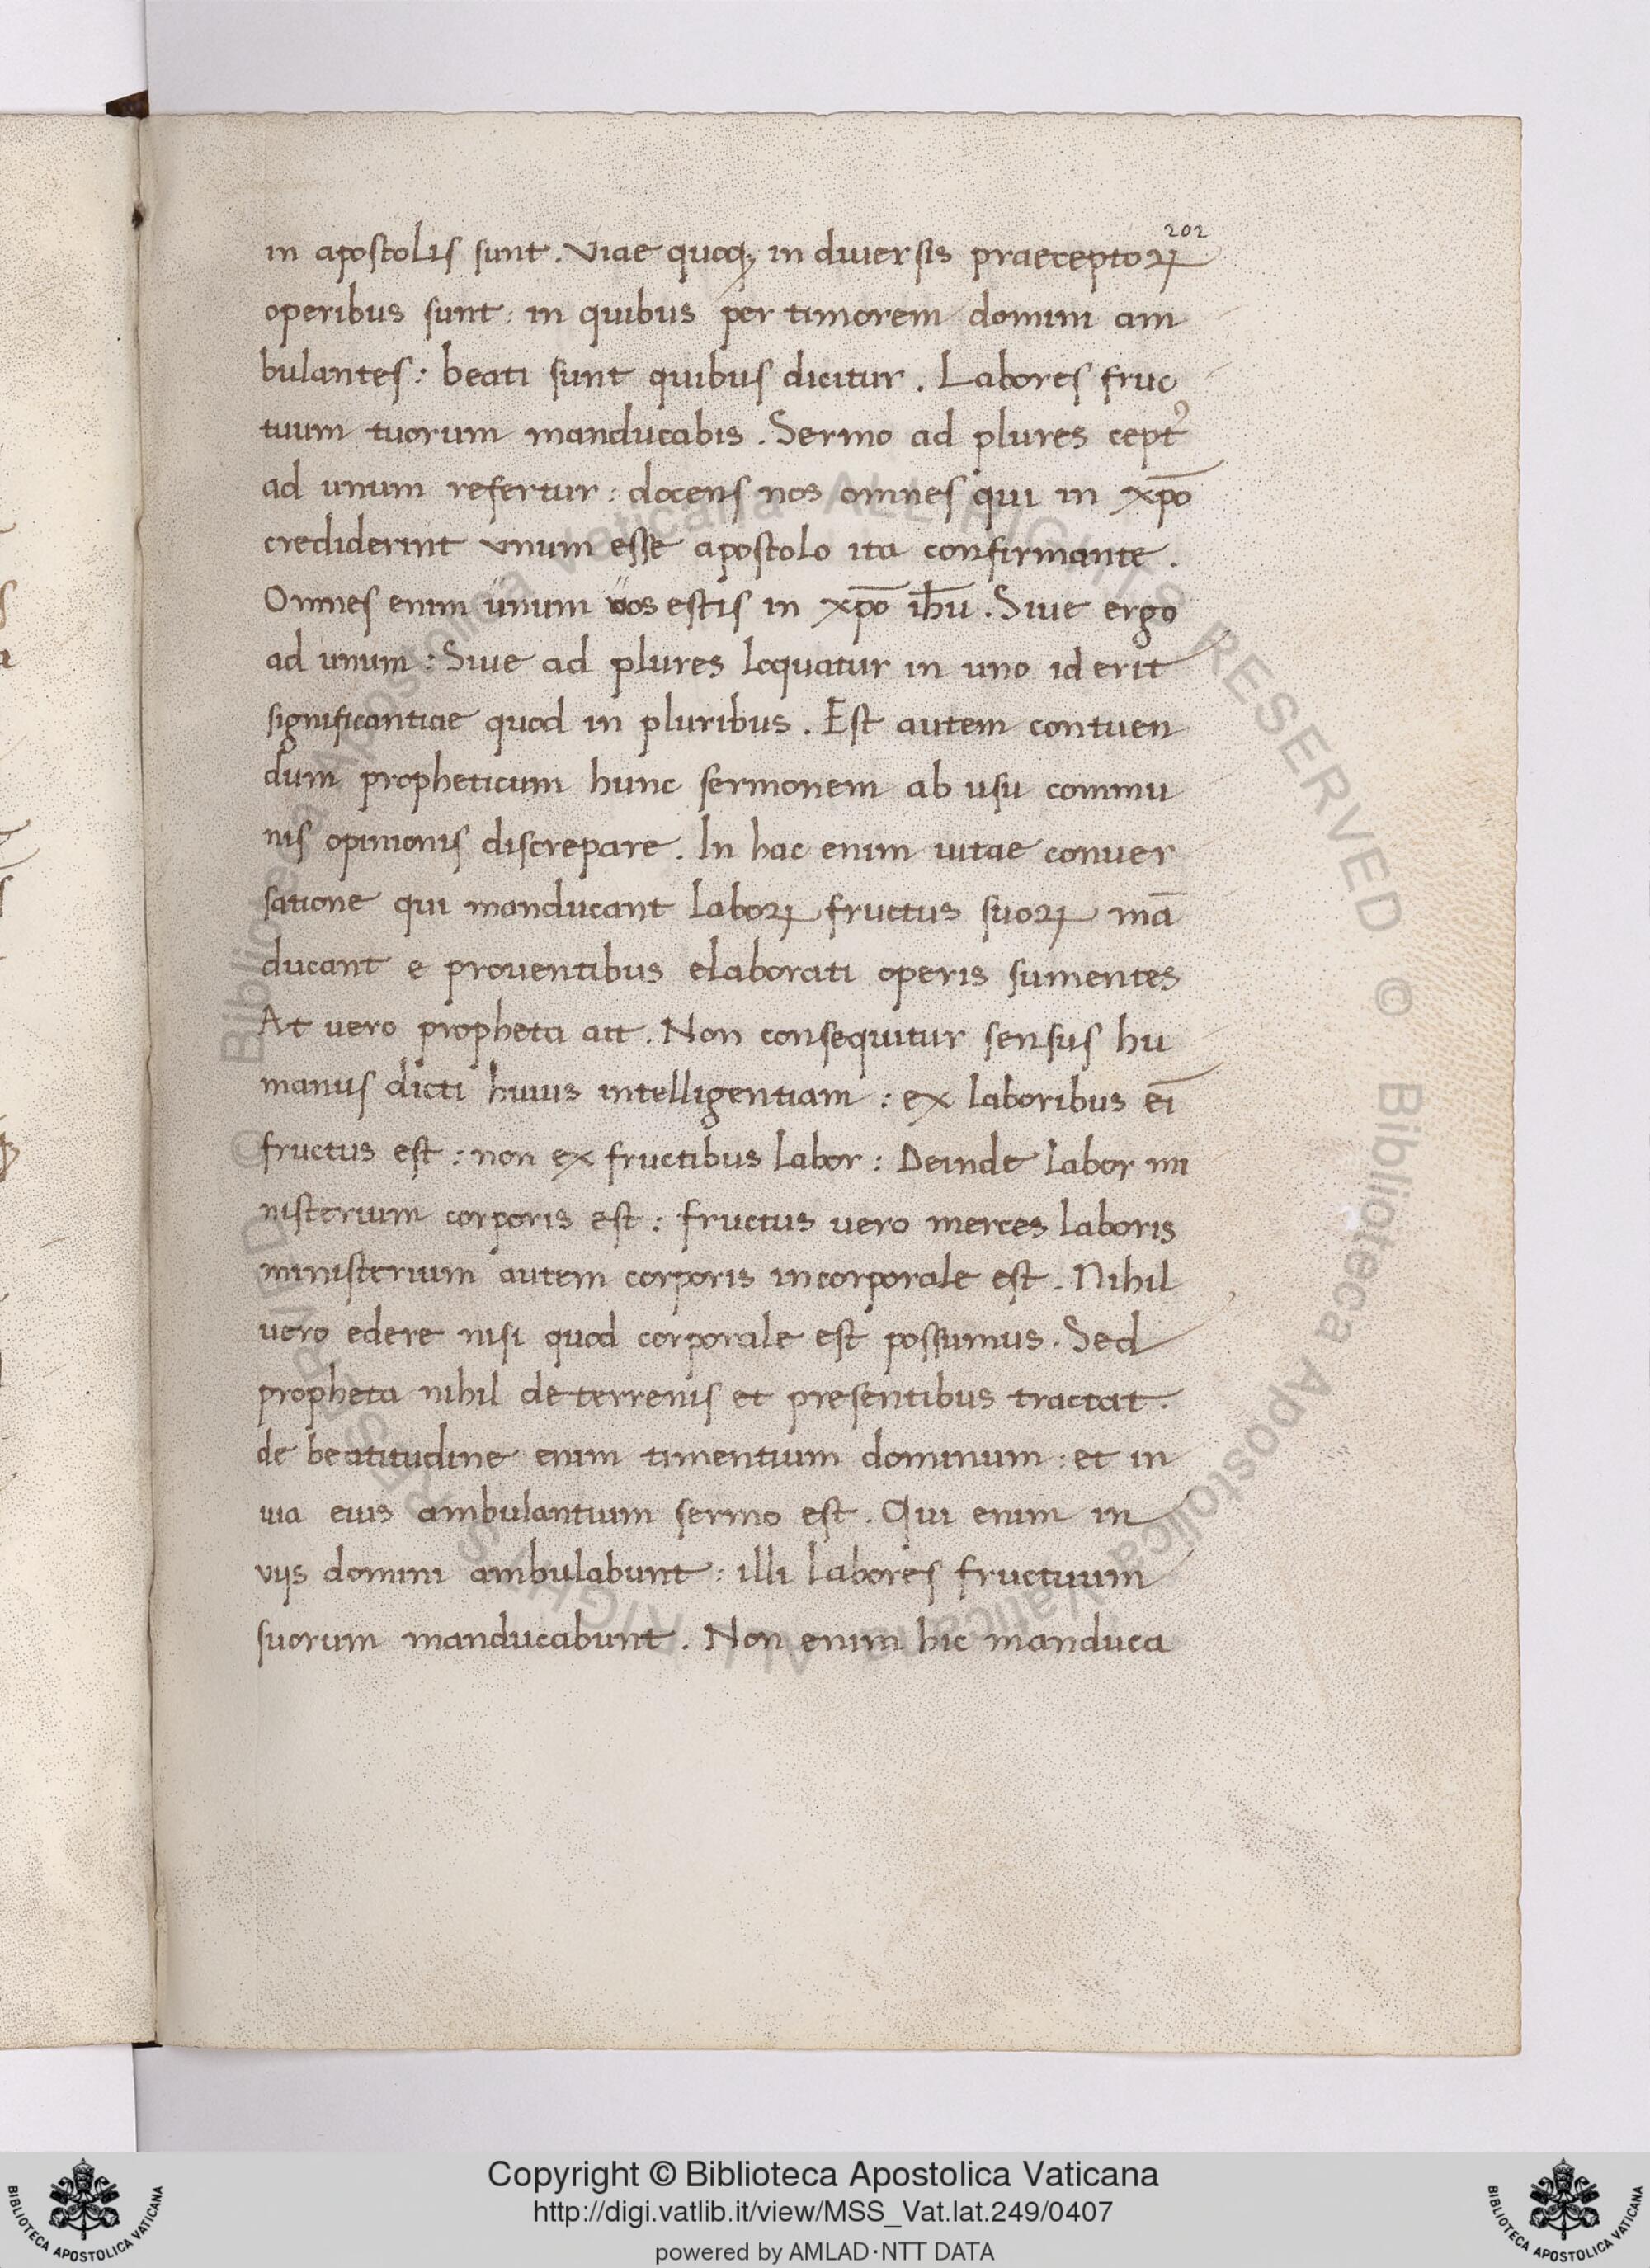 202
in apostolis sunt. Viae quoqꝫ in diuersis praeceptoꝝ
operibus sunt: in quibus per timorem domini am
bulantes: beati sunt quibus dicitur. Labores fruc
tuum tuorum manducabis. Sermo ad plures ceptꝰ
ad unum refertur: docens nos omnes qui in xp̄o
crediderint vnum esse apostolo ita confirmante.
Omnes enim unum uos estis in xp̄o ih̄u. Siue ergo
ad unum: Siue ad plures loquatur in uno id erit
significantiae quod in pluribus. Est autem contuen
dum propheticum hunc sermonem ab usu commu
nis opinionis discrepare. In hac enim uitae conuer
satione qui manducant laboꝝ fructus suoꝝ mā
ducant e prouentibus elaborati operis sumentes
At vero propheta ait. Non consequitur sensus hu
manus dicti huius intelligentiam: ex laboribus ei̅
fructus est: non ex fructibus labor: Deinde labor mi
nisterium corporis est: fructus vero merces laboris
ministerium autem corporis incorporale est. Nihil
uero edere nisi quod corporale est possumus. Sed
propheta nihil de terrenis et presentibus tractat.
de beatitudine enim timentium dominum: et in
uia eius ambulantium sermo est. Qui enim in
viis domini ambulabunt: illi labores fructuum
suorum manducabunt. Non enim hic manduca
© Biblioteca Apostolica Vaticana ALL RIGHTS RESERVED © Biblioteca Apostolica Vaticana ALL RIGHTS RESERVED
Copyright © Biblioteca Apostolica Vaticana
http://digi.vatlib.it/view/MSS_Vat.lat.249/0407
powered by AMLAD·NTT DATA
BIBLIOTECA APOSTOLICA VATICANA
BIBLIOTECA APOSTOLICA VATICANA